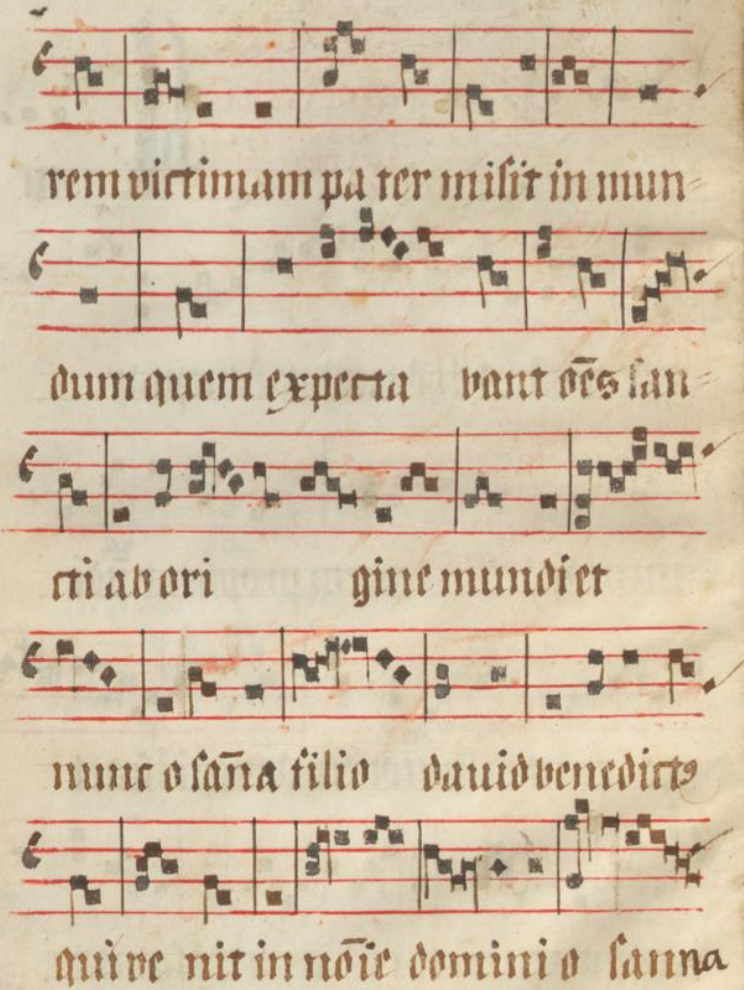 rem victimam pa ter misit in mun-
dum quem expecta vant oēs san-
cti ab ori gine mundi et
nunc o sañna filio dauid benedictꝰ
qui ve nit in nōie domini o sanna